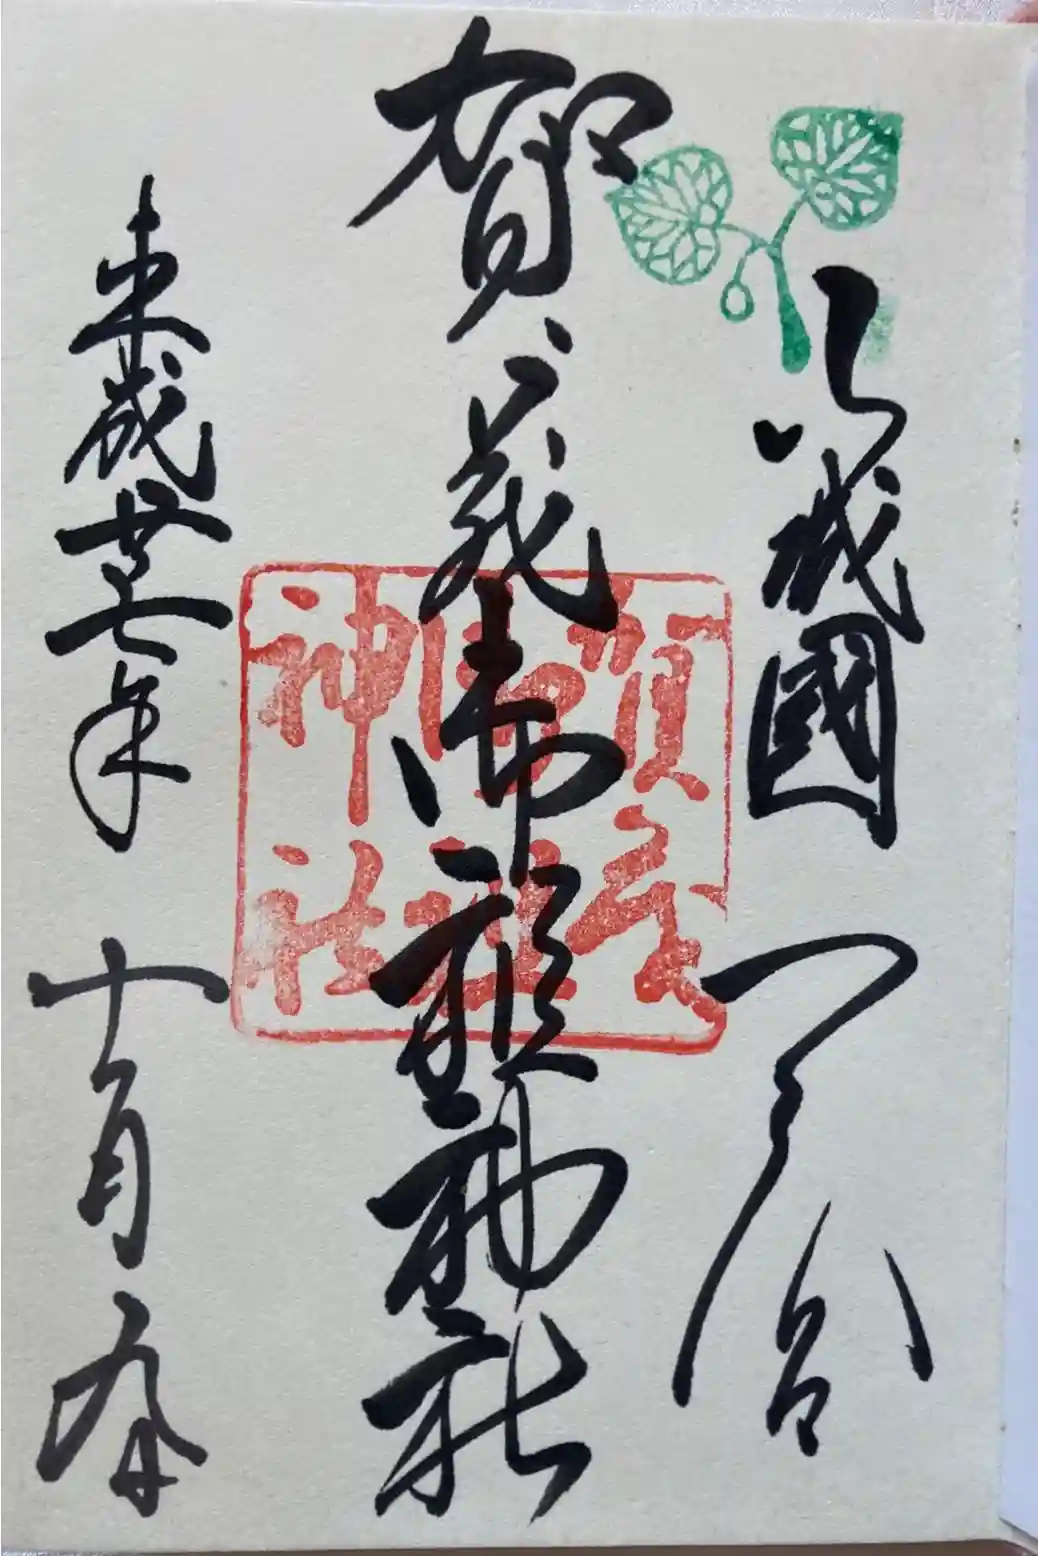 山城國一之宮
賀茂御祖神社
平成廿七年十月
賀茂
御祖
神社